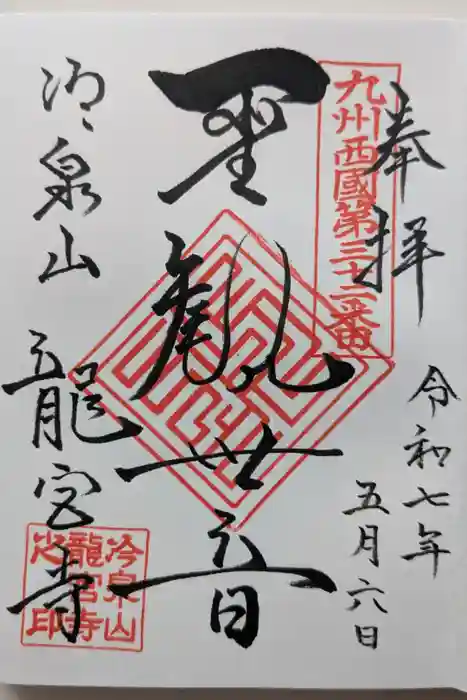 奉拝
九州西國第三十二番
令和七年
五月六日
聖観世音
冷泉山 龍宮寺
冷泉山
龍宮寺
之印